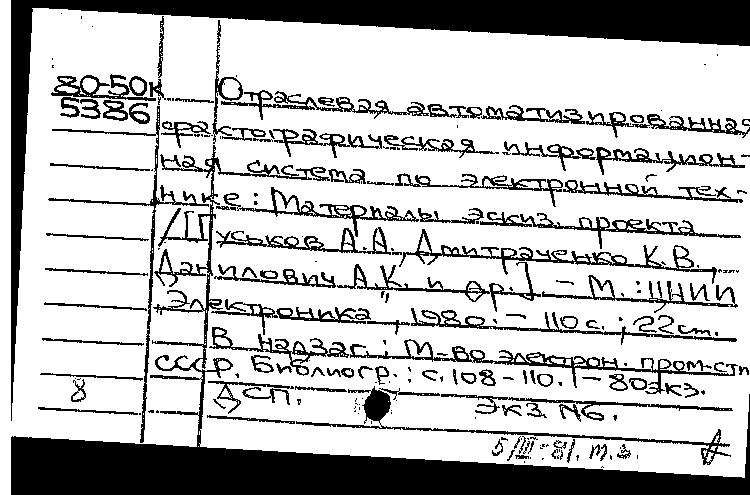 80-50к Отраслевая автоматизированная
5386
фактографическая информацион-
ная система по электронной тех-
нике: Материалы эскиз. проекта
/[Гуськов А.А., Дмитраченко К.В.,
Данилович А.К. и др.]. - М.: ЦНИИ
"Электроника", 1980. - 110 с.; 22 см.
В надзаг.: М-во электрон. пром-сти
СССР. Библиогр.: с. 108-110. - 80 экз.
8 ДСП. Экз. №6.
5/III-81. т.з.